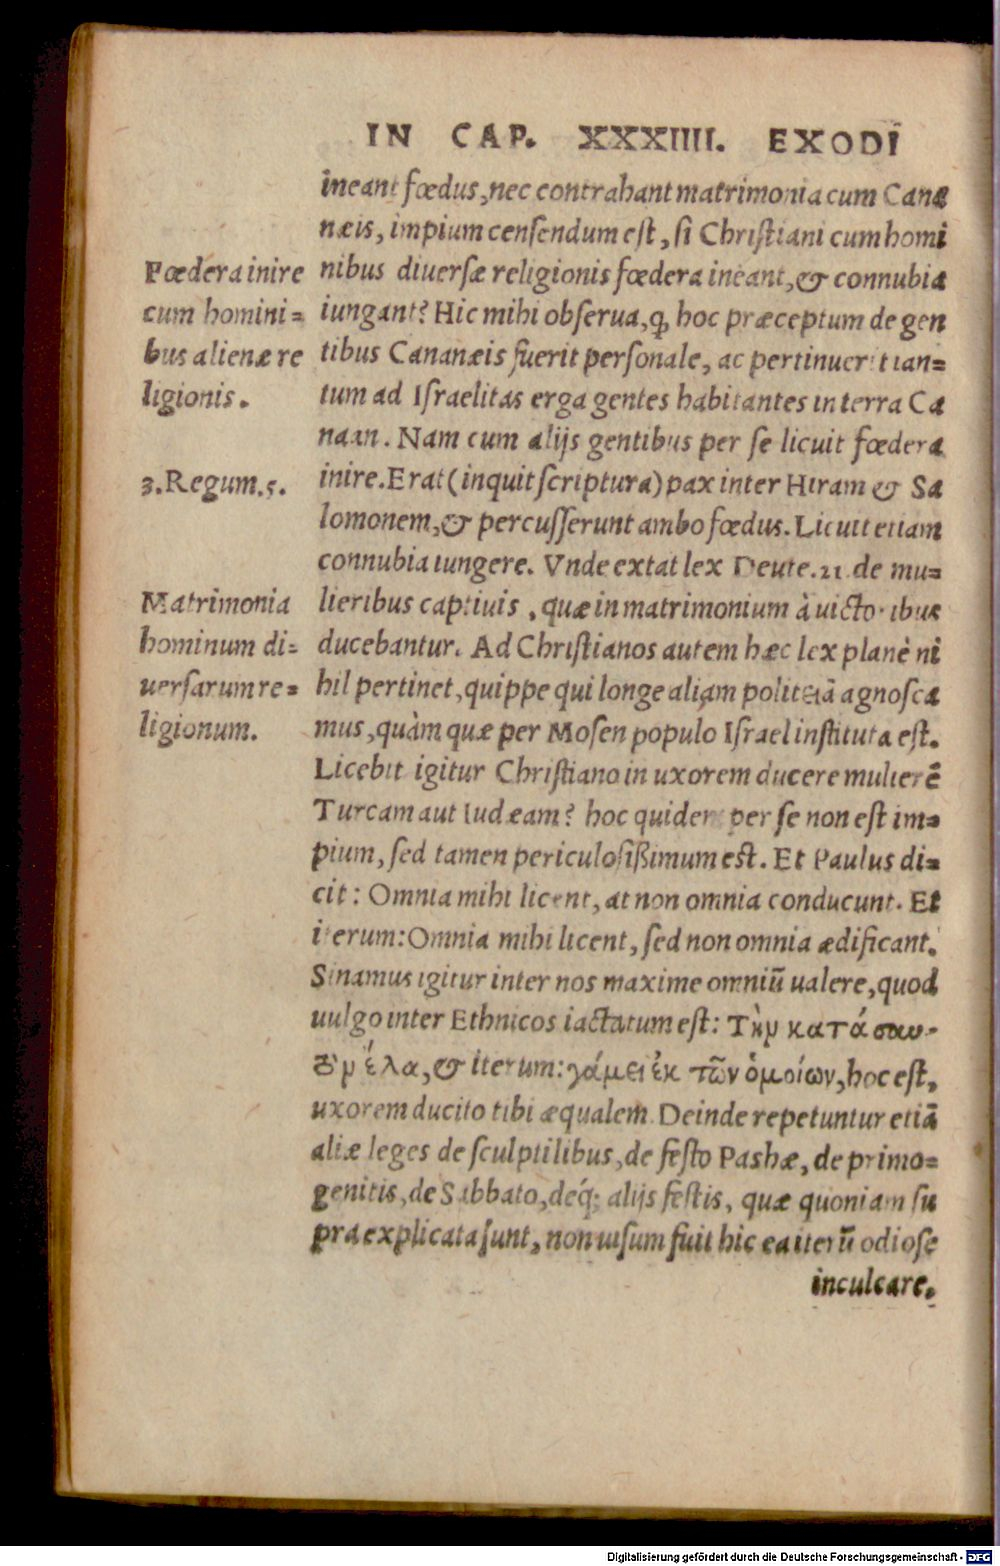 IN CAP. XXXIIII. EXODI
ineant fœdus, nec contrahant matrimonia cum Cana
næis, impium censendum est, si Christiani cum homi
nibus diuersæ religionis fœdera ineant, & connubia
iungant? Hic mihi obserua, ꝙ hoc præceptum de gen
tibus Cananæis fuerit personale, ac pertinuerit tan=
tum ad Israelitas erga gentes habitantes in terra Ca
naan. Nam cum alijs gentibus per se licuit fœdera
inire. Erat (inquit scriptura) pax inter Hiram & Sa
lomonem, & percusserunt ambo fœdus. Licuit etiam
connubia iungere. Vnde extat lex Deute. 21. de mu=
lieribus captiuis, quæ in matrimonium à uictoribus
ducebantur. Ad Christianos autem hæc lex planè ni
hil pertinet, quippe qui longe aliam politeiā agnosca
mus, quàm quæ per Mosen populo Israel instituta est.
Licebit igitur Christiano in uxorem ducere mulierē
Turcam aut Iudæam? hoc quidem per se non est im=
pium, sed tamen periculosißimum est. Et Paulus di=
cit: Omnia mihi licent, at non omnia conducunt. Et
iterum: Omnia mihi licent, sed non omnia ædificant.
Sinamus igitur inter nos maxime omniū ualere, quod
uulgo inter Ethnicos iactatum est: Τὴν κατὰ σαυ-
τὸν ἔλα, & iterum: γάμει ἐκ τῶν ὁμοίων, hoc est,
uxorem ducito tibi æqualem. Deinde repetuntur etiā
aliæ leges de sculptilibus, de festo Pashæ, de primo=
genitis, de Sabbato, deq́; alijs festis, quæ quoniam su
pra explicata sunt, non uisum fuit hic ea iterū odiose
inculcare.
Fœdera inire
cum homini=
bus alienæ re
ligionis.
3. Regum. 5.
Matrimonia
hominum di=
uersarum re=
ligionum.
Digitalisierung gefördert durch die Deutsche Forschungsgemeinschaft - DFG